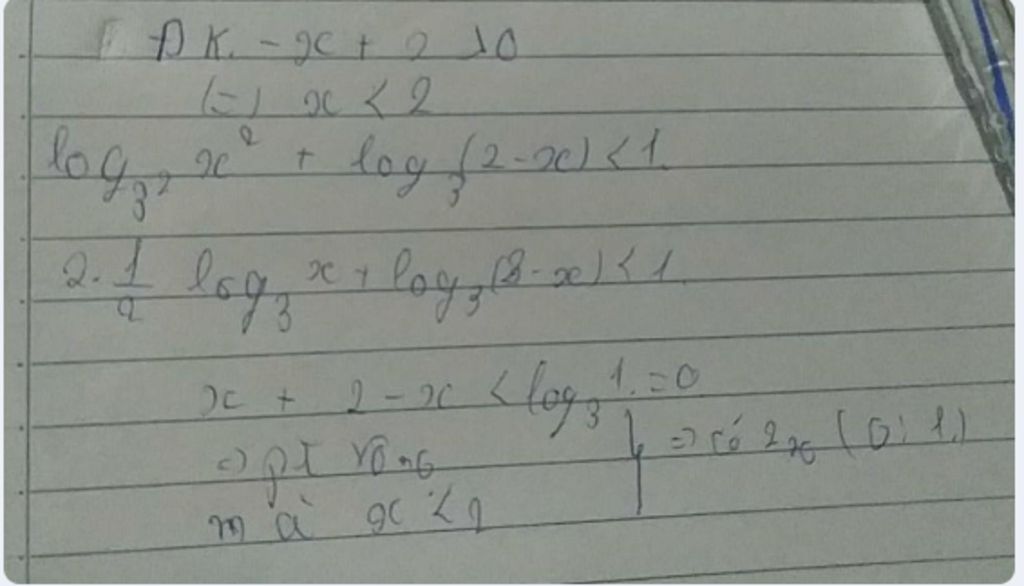 ĐK. -x + 2 > 0
(=) x < 2
log_{3^2} x^2 + log_3 (2-x) < 1
2. 1/2 log_3 x + log_3 (2-x) < 1
x + 2 - x < log_3 1. = 0
=) pt
mà x < 2
=) có 2x (0; 1)